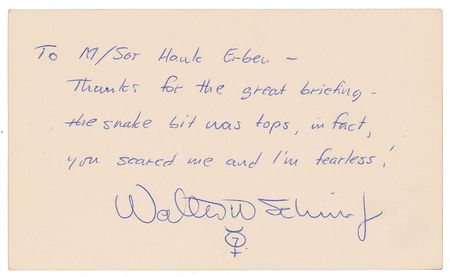 To M/Sgt Hank Erben -
Thanks for the great briefing -
the snake bit was tops, in fact,
you scared me and I'm fearless!
Walter M Schirra Jr
7